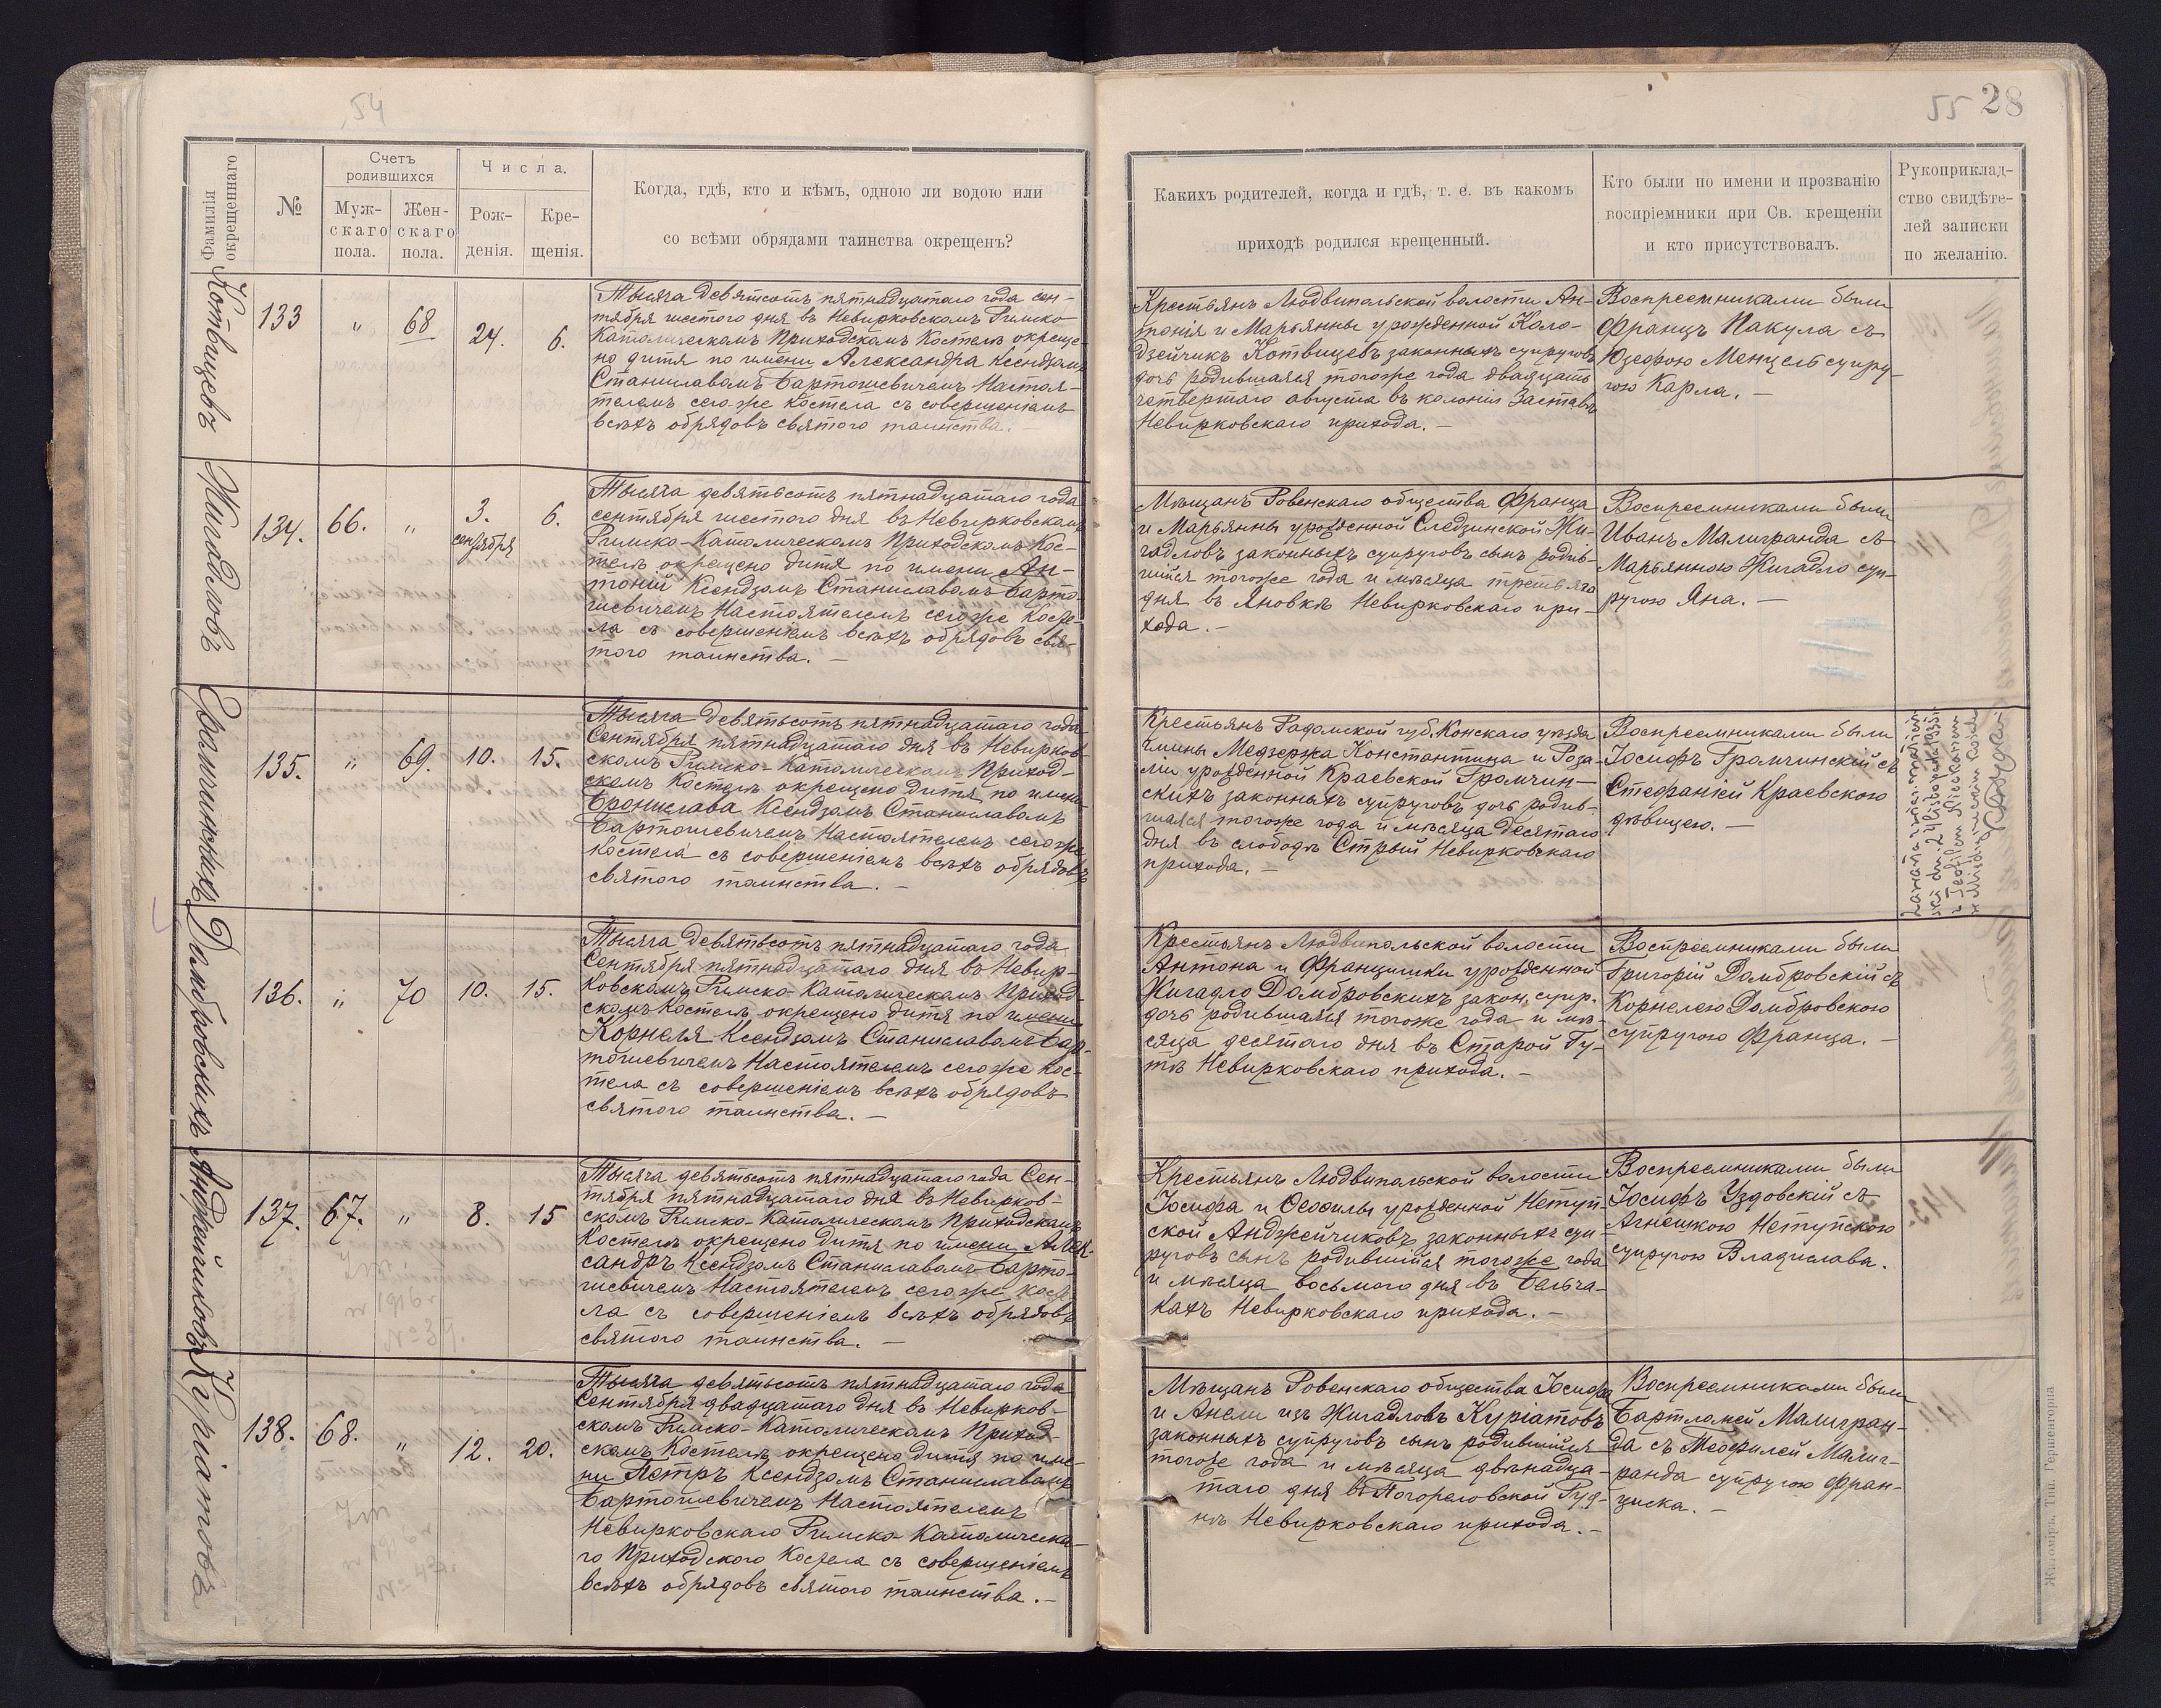 54
55 28
Фамилія
окрещеннаго
№
Счетъ
родившихся
Муж-
скаго
пола.
Жен-
скаго
пола.
Числа.
Рож-
денія.
Кре-
щенія.
Когда, гдѣ, кто и кѣмъ, одною ли водою или
со всѣми обрядами таинства окрещенъ?
Какихъ родителей, когда и гдѣ, т. е. въ какомъ
приходѣ родился крещенный.
Кто были по имени и прозванію
воспріемники при Св. крещеніи
и кто присутствовалъ.
Рукоприклад-
ство свидѣте-
лей записки
по желанію.
Котвицевъ
133 " 68 24. 6.
Тысяча девятсотъ пятнадцатаго года сен-
тября шестого дня въ Невирковскомъ Римско
Католическомъ Приходскомъ Костелѣ окреще-
но дитя по имени Александра Ксендзомъ
Станиславомъ Бартошевичемъ Настоя-
телемъ сего же Костела съ совершеніемъ
всѣхъ обрядовъ святого таинства.
Крестьянъ Людвипольской волости Ан-
тонія и Марьянны урожденной Коло-
дзейчикъ Котвицевъ законныхъ супруговъ
дочь родившаяся того же года двадцать
четвертаго августа въ колоніи Заставѣ
Невирковскаго прихода. —
Воспреемниками были
Францъ Пакула съ
Юзефою Менцель супру-
гою Карла. —
Жигадловъ
134. 66. " 3. сентября 6.
Тысяча девятьсотъ пятнадцатаго года
сентября шестого дня въ Невирковскомъ
Римско-Католическомъ Приходскомъ Кос-
телѣ окрещено дитя по имени Ан-
тоній Ксендзомъ Станиславомъ Барто-
шевичемъ Настоятелемъ сего же Косте-
ла съ совершеніемъ всѣхъ обрядовъ свя-
того таинства. —
Мѣщанъ Ровенскаго общества Франца
и Марьянны урожденной Следзинской Жи-
гадловъ законныхъ супруговъ сынъ родив-
шійся того же года и мѣсяца третьяго
дня въ Яновкѣ Невирковскаго при-
хода. —
Воспреемниками были
Иванъ Малигранда съ
Марьянною Жигадло суп-
ругою Яна. —
135. " 69. 10. 15.
Тысяча девятьсотъ пятнадцатаго года
Сентября пятнадцатаго дня въ Невирков-
скомъ Римско-Католическомъ Приход-
скомъ Костелѣ окрещено дитя по имени
Бронислава Ксендзомъ Станиславомъ
Бартошевичемъ Настоятелемъ сего же
Костела съ совершеніемъ всѣхъ обрядовъ
святого таинства. —
Крестьянъ Радомской губ. Конскаго уѣзда
гмины Медзержа Константина и Роза-
ліи урожденной Краевской Грамчин-
скихъ законныхъ супруговъ дочь родив-
шаяся того же года и мѣсяца десятаго
дня въ слободѣ Стрый Невирковскаго
прихода. —
Воспреемниками были
Іосифъ Грамчинскій съ
Стефаніей Краевскою
дѣвицею. —
Домбровскихъ
136. " 70 10. 15.
Тысяча девятьсотъ пятнадцатаго года
Сентября пятнадцатаго дня въ Невир-
ковскомъ Римско-Католическомъ Приход-
скомъ Костелѣ окрещено дитя по имени
Корнеля Ксендзомъ Станиславомъ Бар-
тошевичемъ Настоятелемъ сего же Кос-
тела съ совершеніемъ всѣхъ обрядовъ
святого таинства. —
Крестьянъ Людвипольской волости
Антона и Францишки урожденной
Жигадло Домбровскихъ закон. супр.
дочь родившаяся того же года и мѣ-
сяца десятаго дня въ Старой Гу-
тѣ Невирковскаго прихода. —
Воспреемниками были
Григорій Домбровскій съ
Корнелею Домбровскою
супругою Франца. —
Андрейчиковъ
137. 67. " 8. 15
Тысяча девятьсотъ пятнадцатаго года Сен-
тября пятнадцатаго дня въ Невирков-
скомъ Римско-Католическомъ Приходскомъ
Костелѣ окрещено дитя по имени Алек-
сандръ Ксендзомъ Станиславомъ Барто-
шевичемъ Настоятелемъ сего же Косте-
ла съ совершеніемъ всѣхъ обрядовъ
святого таинства. —
Крестьянъ Людвипольской волости
Іосифа и Ѳеофилы урожденной Нетуп-
ской Анджейчиковъ законныхъ суп-
руговъ сынъ родившійся того же года
и мѣсяца восьмого дня въ Бельча-
кахъ Невирковскаго прихода. —
Воспреемниками были
Іосифъ Уздовскій съ
Агнешкою Нетупскою
супругою Владислава.
Куріатовъ
138. 68. " 12. 20.
Тысяча девятьсотъ пятнадцатаго года
Сентября двадцатаго дня въ Невирков-
скомъ Римско-Католическомъ Приход-
скомъ Костелѣ окрещено дитя по име-
ни Петръ Ксендзомъ Станиславомъ
Бартошевичемъ Настоятелемъ
Невирковскаго Римско Католическа-
го Приходского Костела съ совершеніемъ
всѣхъ обрядовъ святого таинства. —
Мѣщанъ Ровенскаго общества Іосифа
и Анели изъ Жигадловъ Куріатовъ
законныхъ супруговъ сынъ родившійся
того же года и мѣсяца двѣнадца-
таго дня въ Погореловской Руд-
нѣ Невирковскаго прихода. —
Воспреемниками были
Бартломей Малигран-
да съ Теофилей Малиг-
ранда супругою Фран-
циска. —
Житоміръ, Тип. Гершенгорна